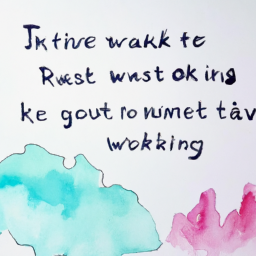 Jktive wakk te
Rwest wnst ok ing
ke gout ro numet tav
wokking